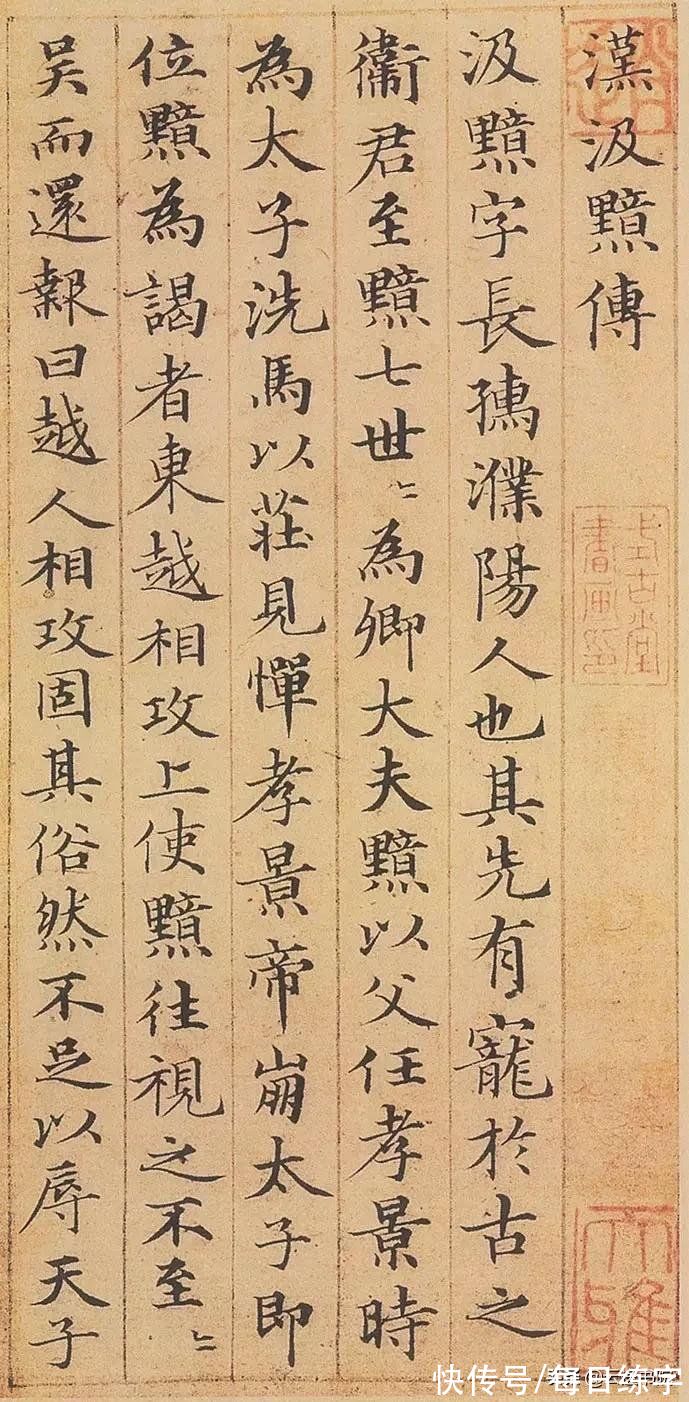 漢汲黯傳
汲黯字長孺濮陽人也其先有寵於古之
衞君至黯七世〻為卿大夫黯以父任孝景時
為太子洗馬以莊見憚孝景帝崩太子即
位黯為謁者東越相攻上使黯往視之不至〻
吳而還報曰越人相攻固其俗然不足以辱天子
快传号/每日练字